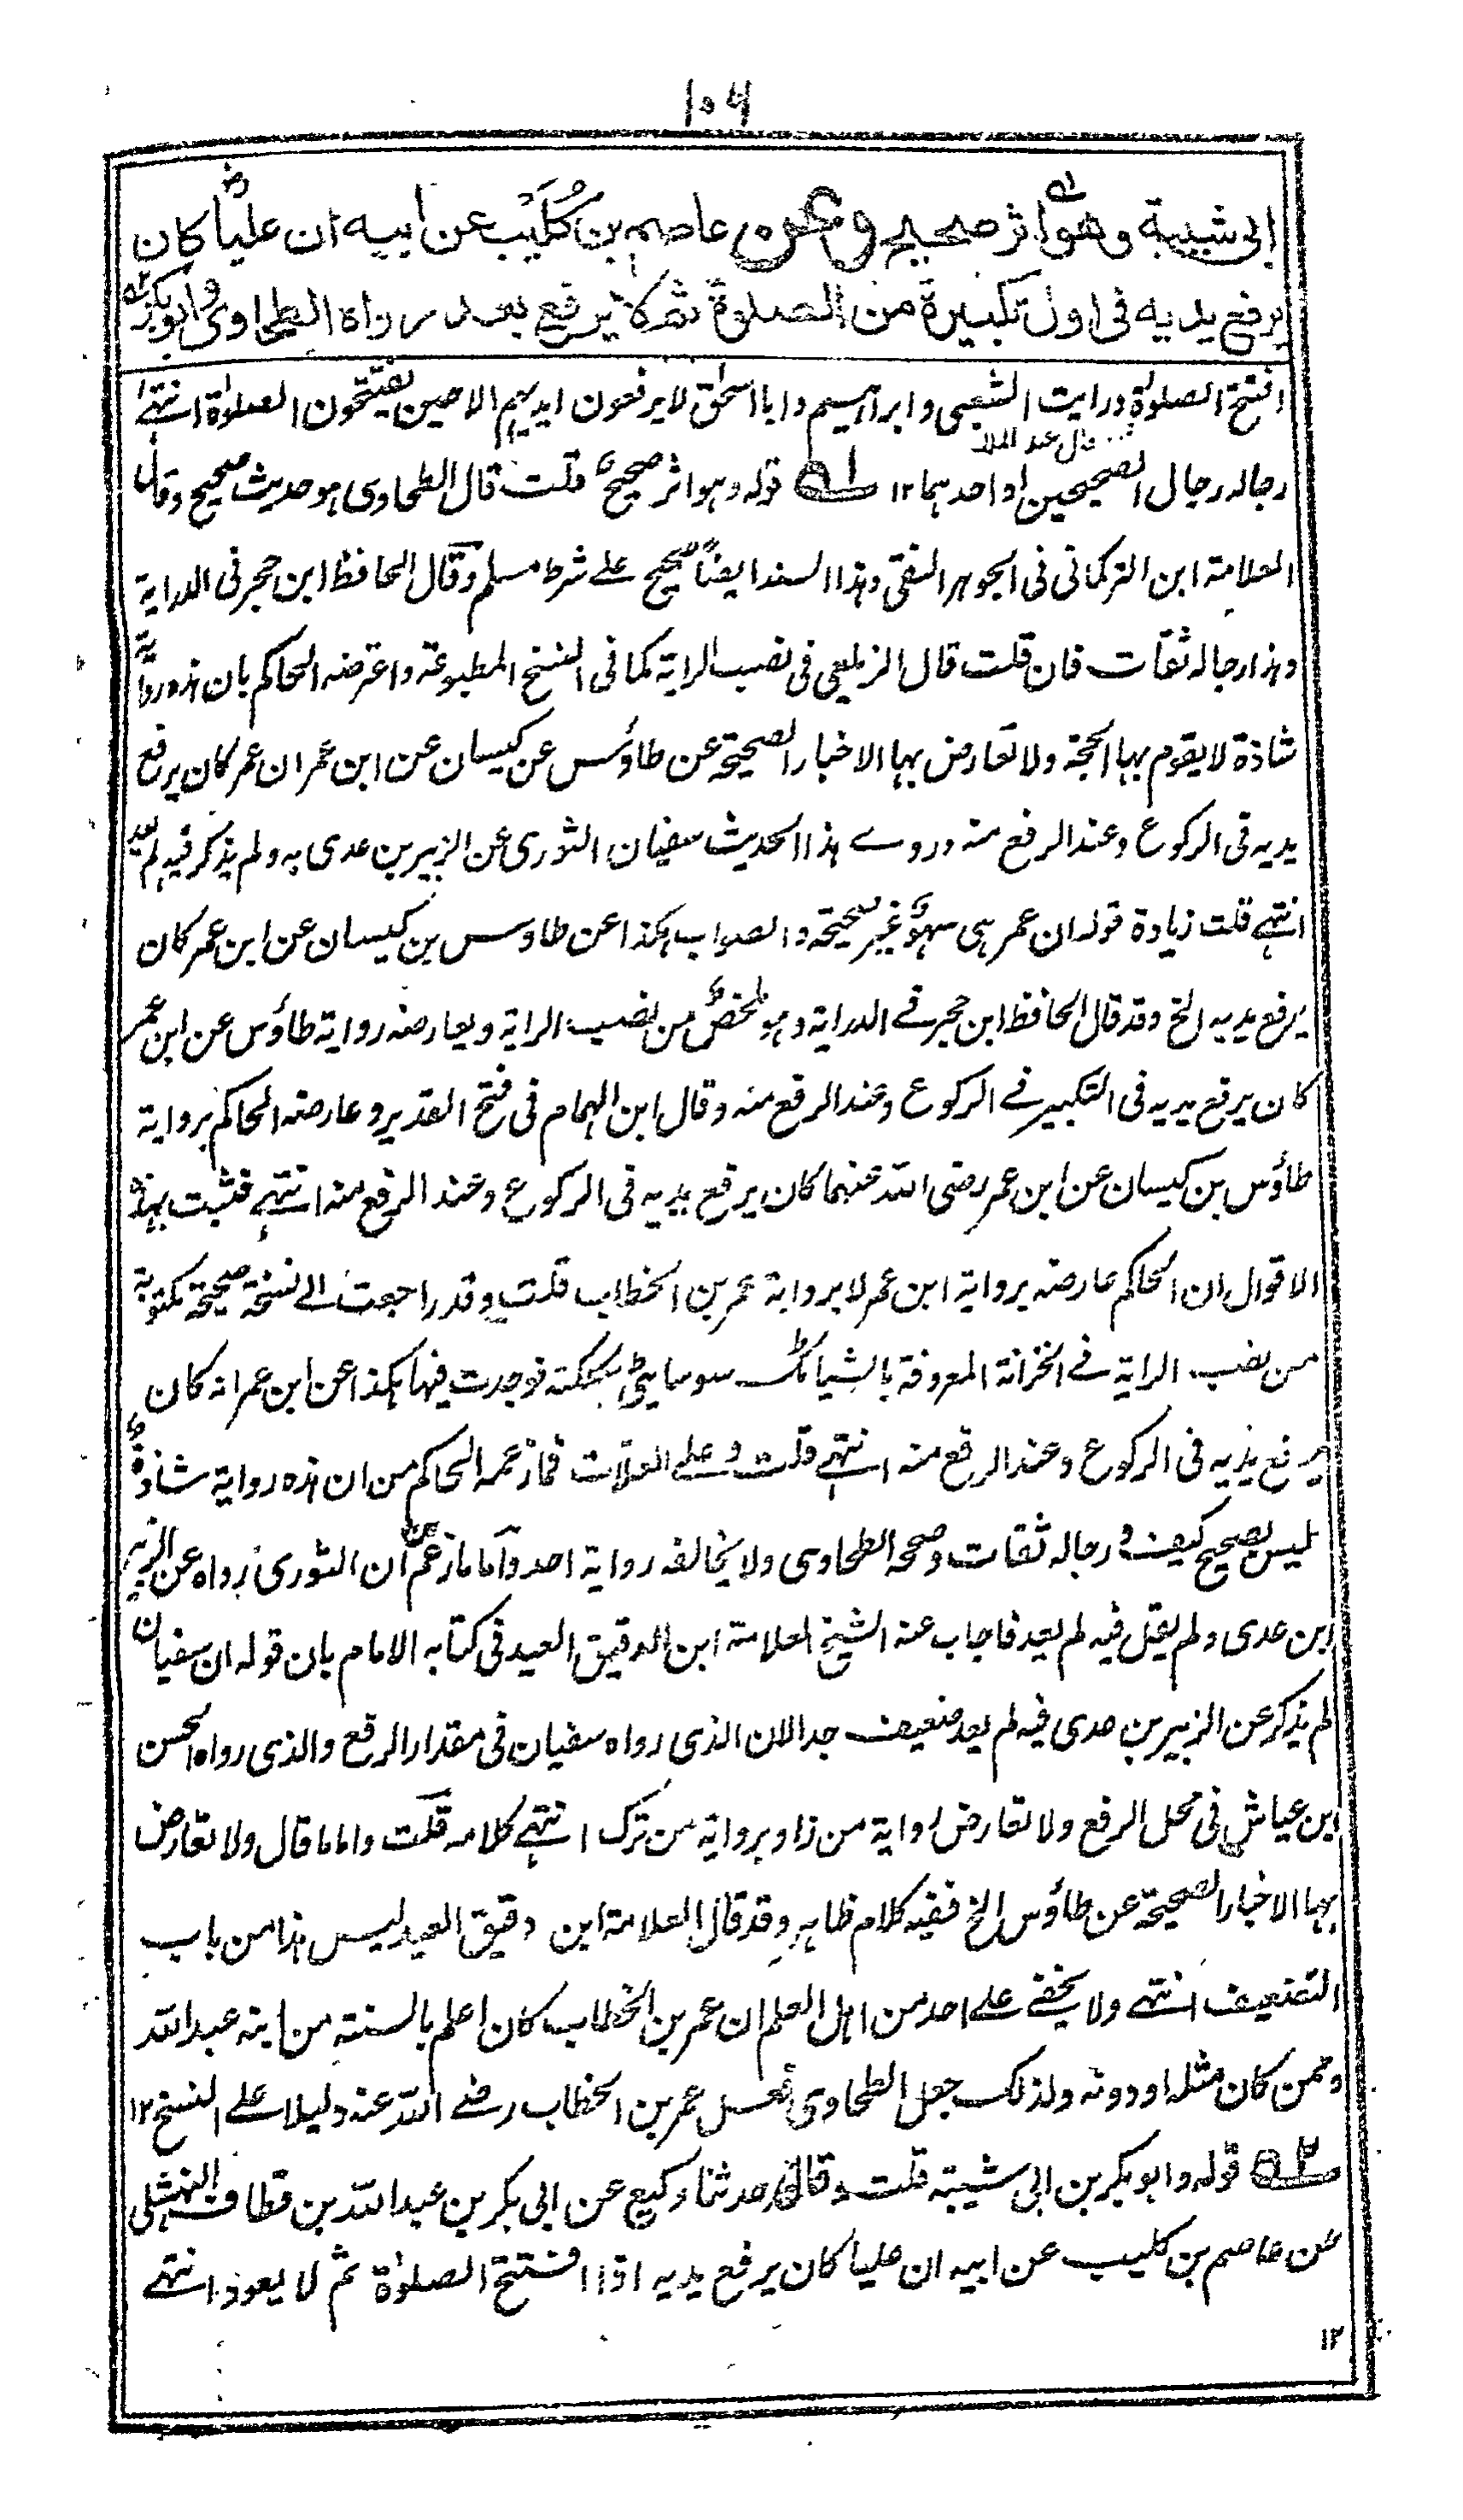 ١٠٦
ابی شیبة وهو اثر صحیح وعن عاصم بن کُلَیْب عن ابیه ان علیًّا رض کان
یرفع یدیه فی اول تکبیرة من الصلوة ثم لا یرفع بعد رواه الطحاوی وابوبکر
افتتح الصلوة ورایت الشعبی وابراہیم وابا اسحٰق لا یرفعون ایدیہم الا حین یفتتحون الصلوٰة انتہے
رجالہ رجال الصحیحین او احدہما ۱۲ قولہ وہو اثر صحیح قلت قال الطحاوی ہو حدیث صحیح وقال
العلامة ابن الترکمانی فی الجوہر النقی وہذا السند ایضًا صحیح علے شرط مسلم وقال الحافظ ابن حجر فی الدرایة
وہذا رجالہ ثقات فان قلت قال الزیلعی فی نصب الرایة کما فی النسخ المطبوعة واعترضہ الحاکم بان ہذہ روایة
شاذة لا یقوم بہا الحجة ولا تعارض بہا الاخبار الصحیحة عن طاؤس عن کیسان عن ابن عمر ان عمر کان یرفع
یدیہ فی الرکوع وعند الرفع منہ وروے ہذا الحدیث سفیان الثوری عن الزبیر بن عدی بہ ولم یذکر فیہ لم یعد
انتہے قلت زیادة قولہ ان عمر ہی سہوٌ غیر صحیحة والصواب ہکذا عن طاوس بن کیسان عن ابن عمر کان
یرفع یدیہ الخ وقد قال الحافظ ابن حجر فے الدرایة وہو ملخص من نصب الرایة ویعارضہ روایة طاؤس عن ابن عمر
کان یرفع یدیہ فی التکبیر فے الرکوع وعند الرفع منہ وقال ابن الہمام فی فتح القدیر وعارضہ الحاکم بروایة
طاؤس بن کیسان عن ابن عمر رضی اللہ عنہما کان یرفع یدیہ فی الرکوع وعند الرفع منہ انتہے فثبت بہذہ
الاقوال ان الحاکم عارضہ بروایة ابن عمر لا بروایة عمر بن الخطاب قلت وقد راجعت الے نسخة صحیحة مکتوبة
من نصب الرایة فے الخزانة المعروفة بالشیاٹک سوسایٹی بکلکتہ فوجدت فیہا ہکذا عن ابن عمر انہ کان
یرفع یدیہ فی الرکوع وعند الرفع منہ انتہے قلت وعلے العلات فما زعمہ الحاکم من ان ہذہ روایة شاذة
لیس بصحیح کیف ورجالہ ثقات وصححہ الطحاوی ولا یخالفہ روایة احد واما ما زعم من ان الثوری رواہ عن الزبیر
ابن عدی ولم یقل فیہ لم یعد فاجاب عنہ الشیخ العلامة ابن الدقیق العید فی کتابہ الامام بان قولہ ان سفیان
لم یذکر عن الزبیر بن عدی فیہ لم یعد ضعیف جدا لان الذی رواہ سفیان فی مقدار الرفع والذی رواہ الحسن
ابن عیاش فی محل الرفع ولا تعارض روایة من زاد بروایة من ترک انتہے کلامہ قلت واما ما قال ولا تعارض
بہا الاخبار الصحیحة عن طاؤس الخ ففیہ کلام ظاہر وقد قال العلامة ابن دقیق العید لیس ہذا من باب
التضعیف انتہے ولا یخفے علے احد من اہل العلم ان عمر بن الخطاب کان اعلم بالسنة من ابنہ عبد اللہ
وممن کان مثلہ او دونہ ولذلک جعل الطحاوی فعل عمر بن الخطاب رضے اللہ عنہ دلیلا علے النسخ ۱۲
۲ قولہ وابو بکر بن ابی شیبة قلت وقال حدثنا وکیع عن ابی بکر بن عبد اللہ بن قطاف النہشلی
عن عاصم بن کلیب عن ابیہ ان علیا کان یرفع یدیہ اذا افتتح الصلوٰة ثم لا یعود انتہے
۱۲